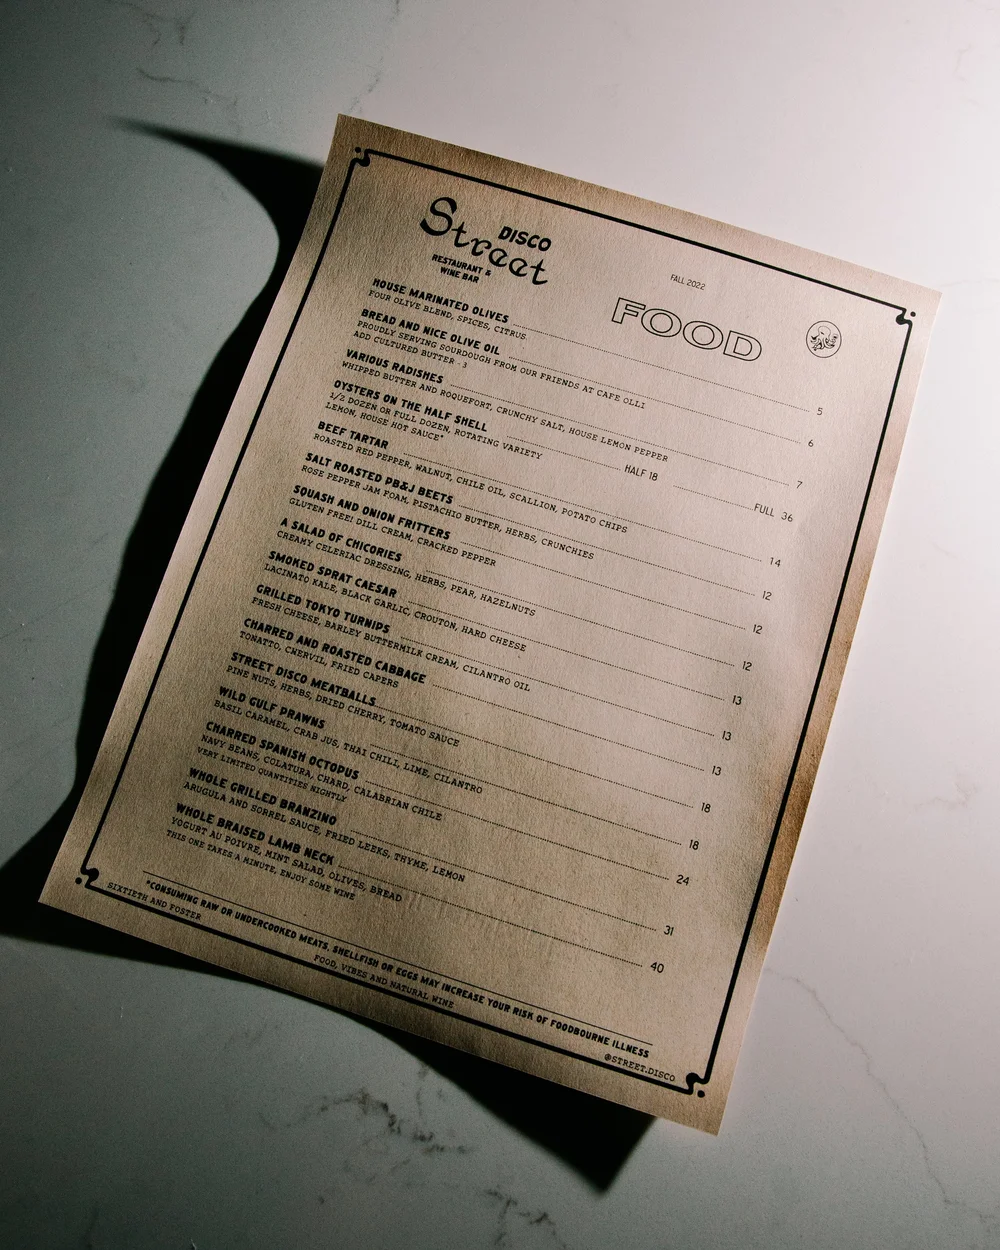 Street DISCO
RESTAURANT &
WINE BAR
FALL 2022
FOOD
HOUSE MARINATED OLIVES 5
FOUR OLIVE BLEND, SPICES, CITRUS
BREAD AND NICE OLIVE OIL 6
PROUDLY SERVING SOURDOUGH FROM OUR FRIENDS AT CAFE OLLI
ADD CULTURED BUTTER - 3
VARIOUS RADISHES 7
WHIPPED BUTTER AND ROQUEFORT, CRUNCHY SALT, HOUSE LEMON PEPPER
OYSTERS ON THE HALF SHELL HALF 18 FULL 36
1/2 DOZEN OR FULL DOZEN, ROTATING VARIETY
LEMON, HOUSE HOT SAUCE*
BEEF TARTAR 14
ROASTED RED PEPPER, WALNUT, CHILE OIL, SCALLION, POTATO CHIPS
SALT ROASTED PB&J BEETS 12
ROSE PEPPER JAM FOAM, PISTACHIO BUTTER, HERBS, CRUNCHIES
SQUASH AND ONION FRITTERS 12
GLUTEN FREE! DILL CREAM, CRACKED PEPPER
A SALAD OF CHICORIES 12
CREAMY CELERIAC DRESSING, HERBS, PEAR, HAZELNUTS
SMOKED SPRAT CAESAR 13
LACINATO KALE, BLACK GARLIC, CROUTON, HARD CHEESE
GRILLED TOKYO TURNIPS 13
FRESH CHEESE, BARLEY BUTTERMILK CREAM, CILANTRO OIL
CHARRED AND ROASTED CABBAGE 13
TONATTO, CHERVIL, FRIED CAPERS
STREET DISCO MEATBALLS 18
PINE NUTS, HERBS, DRIED CHERRY, TOMATO SAUCE
WILD GULF PRAWNS 18
BASIL CARAMEL, CRAB JUS, THAI CHILI, LIME, CILANTRO
CHARRED SPANISH OCTOPUS 24
NAVY BEANS, COLATURA, CHARD, CALABRIAN CHILE
VERY LIMITED QUANTITIES NIGHTLY
WHOLE GRILLED BRANZINO 31
ARUGULA AND SORREL SAUCE, FRIED LEEKS, THYME, LEMON
WHOLE BRAISED LAMB NECK 40
YOGURT AU POIVRE, MINT SALAD, OLIVES, BREAD
THIS ONE TAKES A MINUTE, ENJOY SOME WINE
*CONSUMING RAW OR UNDERCOOKED MEATS, SHELLFISH OR EGGS MAY INCREASE YOUR RISK OF FOODBOURNE ILLNESS
SIXTIETH AND FOSTER
FOOD, VIBES AND NATURAL WINE
@STREET.DISCO